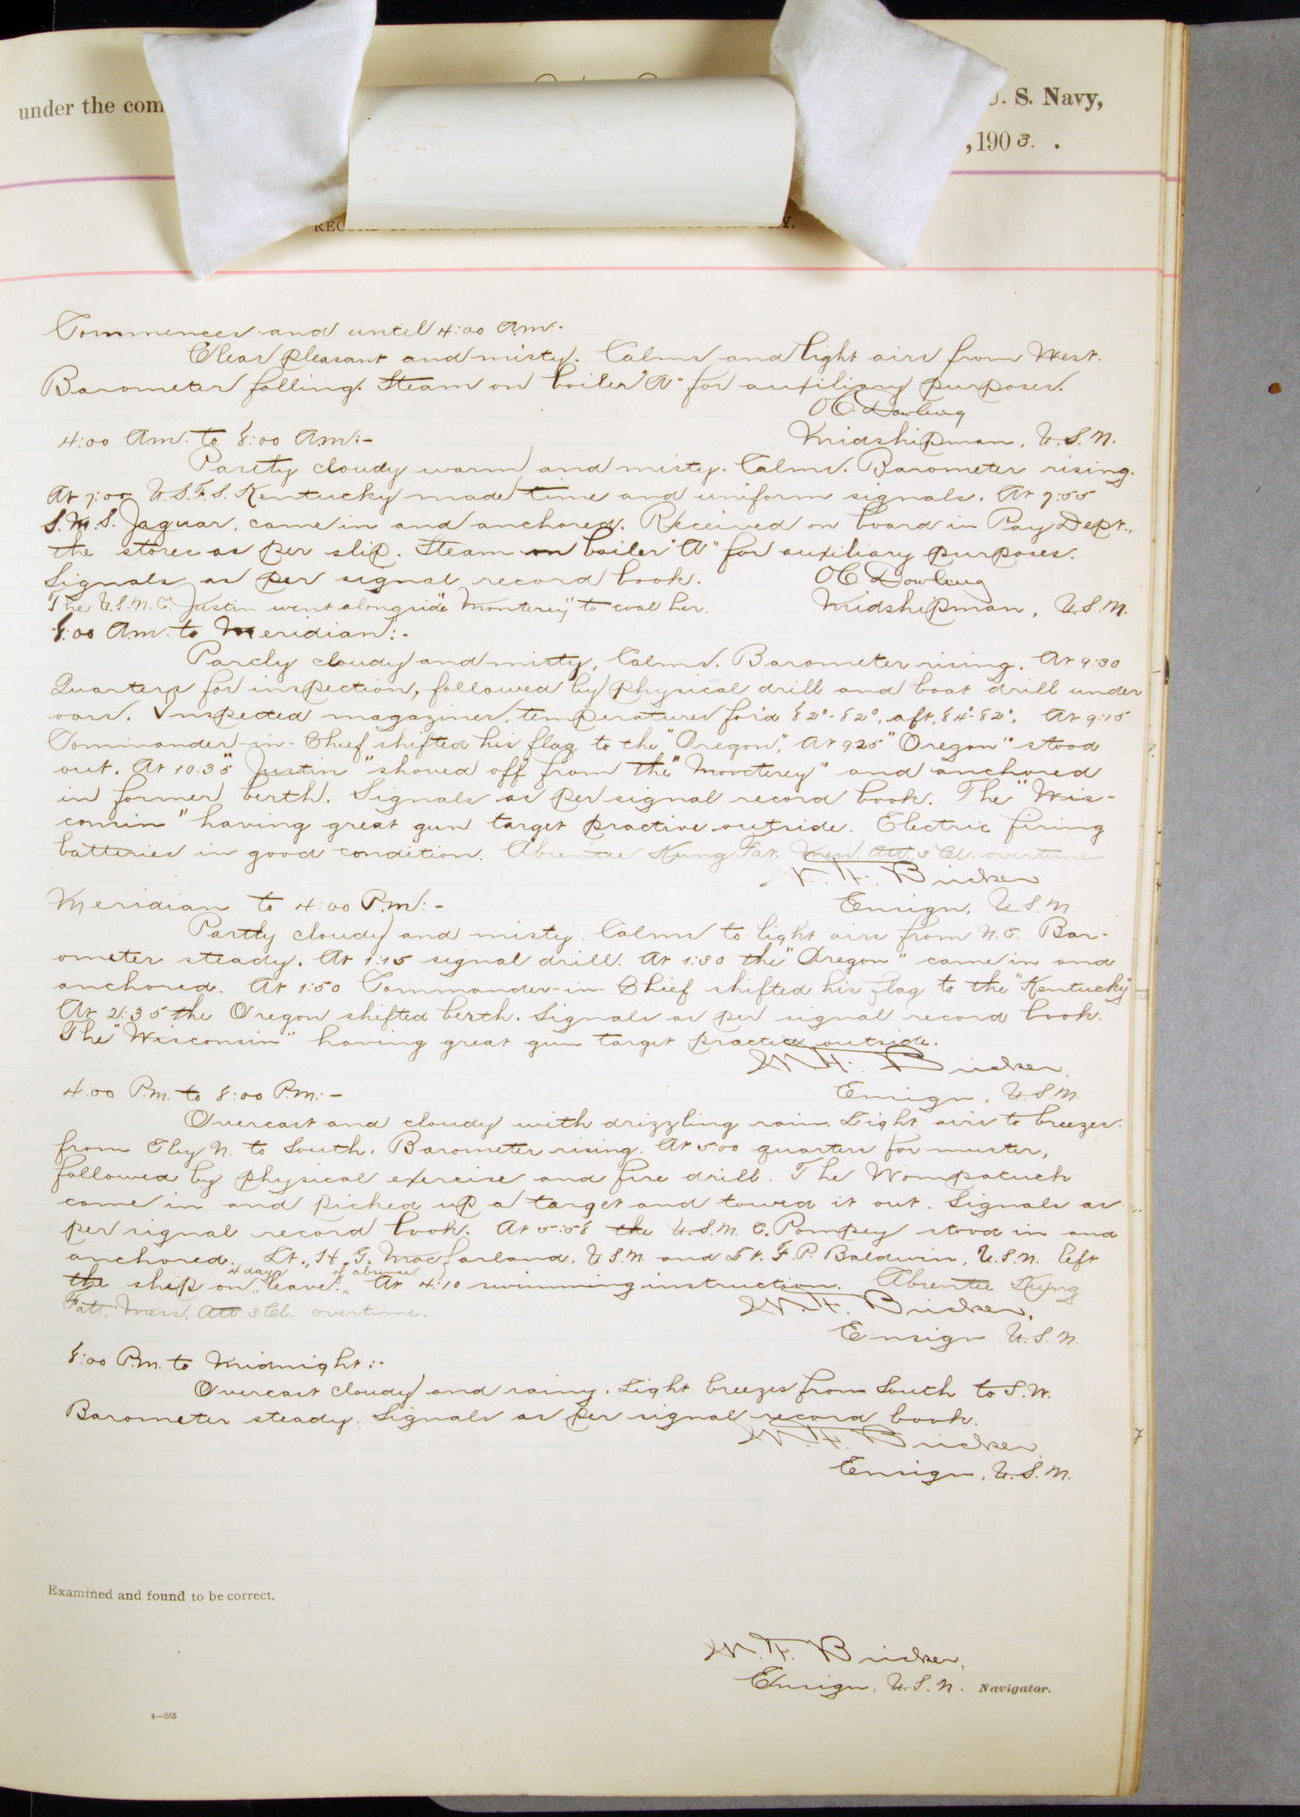 under the com
U. S. Navy,
, 1903. .
Commences and until 4:00 A.M.
Clear pleasant and misty. Calms and light airs from West.
Barometer falling. Steam on boiler "A" for auxiliary purposes.
O C Dowling
Midshipman, U.S.N.
4:00 A.M. to 8:00 A.M:-
Partly cloudy warm and misty. Calms. Barometer rising.
At 7:00 U.S.F.S. Kentucky made time and uniform signals. At 7:55
S.M.S. Jaguar, came in and anchored. Received on board in Pay Dept.,
the stores as per slip. Steam on boiler "A" for auxiliary purposes.
Signals as per signal record book.
O C Dowling
The U.S.N.C. Justin went alongside "Monterey" to coal her.
Midshipman, U.S.N.
8:00 A.M. to Meridian:-
Partly cloudy and misty, Calms. Barometer rising. At 9:30
Quarters for inspection, followed by physical drill and boat drill under
oars. Inspected magazines, temperatures for'd 82°-82°, aft, 84°-82°. At 9:15
Commander-in-Chief shifted his flag to the "Oregon", At 9:25 "Oregon" stood
out. At 10:35 "Justin" shoved off from the "Monterey" and anchored
in former berth. Signals as per signal record book. The "Wis-
consin" having great gun target practice outside. Electric firing
batteries in good condition. Absentee Kung Fat. Mess. Att. 3 Cl. overtime
W. F. Bricker
Ensign, U.S.N.
Meridian to 4:00 P.M:-
Partly cloudy and misty. Calms to light airs from N.E. Bar-
ometer steady. At 1:15 signal drill. At 1:30 the "Oregon" came in and
anchored. At 1:50 Commander-in-Chief shifted his flag to the "Kentucky"
At 2:35 the Oregon shifted berth. Signals as per signal record book.
The "Wisconsin" having great gun target practice outside.
W. F. Bricker.
Ensign, U.S.N.
4:00 P.M. to 8:00 P.M:-
Overcast and cloudy with drizzling rain. Light airs to breezes
from E by N. to South. Barometer rising. At 5:00 quarters for muster,
followed by physical exercise and fire drill. The Wompatuck
came in and picked up a target and towed it out. Signals as
per signal record book. At 5:58 the U.S.N.C. Pompey stood in and
anchored. Lt., H. G. Macfarland, U.S.N. and Lt. F. P. Baldwin, U.S.N. left
the ship on 4 days leave of absence. At 4:10 swimming instruction. Absentee Kung
Fatt, Mess. Att 3 Cl. overtime.
W. F. Bricker,
Ensign U.S.N
8:00 P.M. to Midnight:-
Overcast cloudy and rainy. Light breezes from South to S.W.
Barometer steady. Signals as per signal record book.
W. F. Bricker
Ensign, U.S.N.
Examined and found to be correct.
W. F. Bricker,
Ensign, U.S.N. Navigator.
4—265